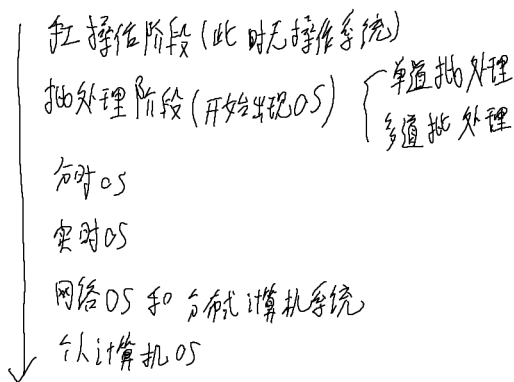 手工操作阶段(此时无操作系统)
批处理阶段(开始出现OS)
单道批处理
多道批处理
分时OS
实时OS
网络OS和分布式计算机系统
个人计算机OS